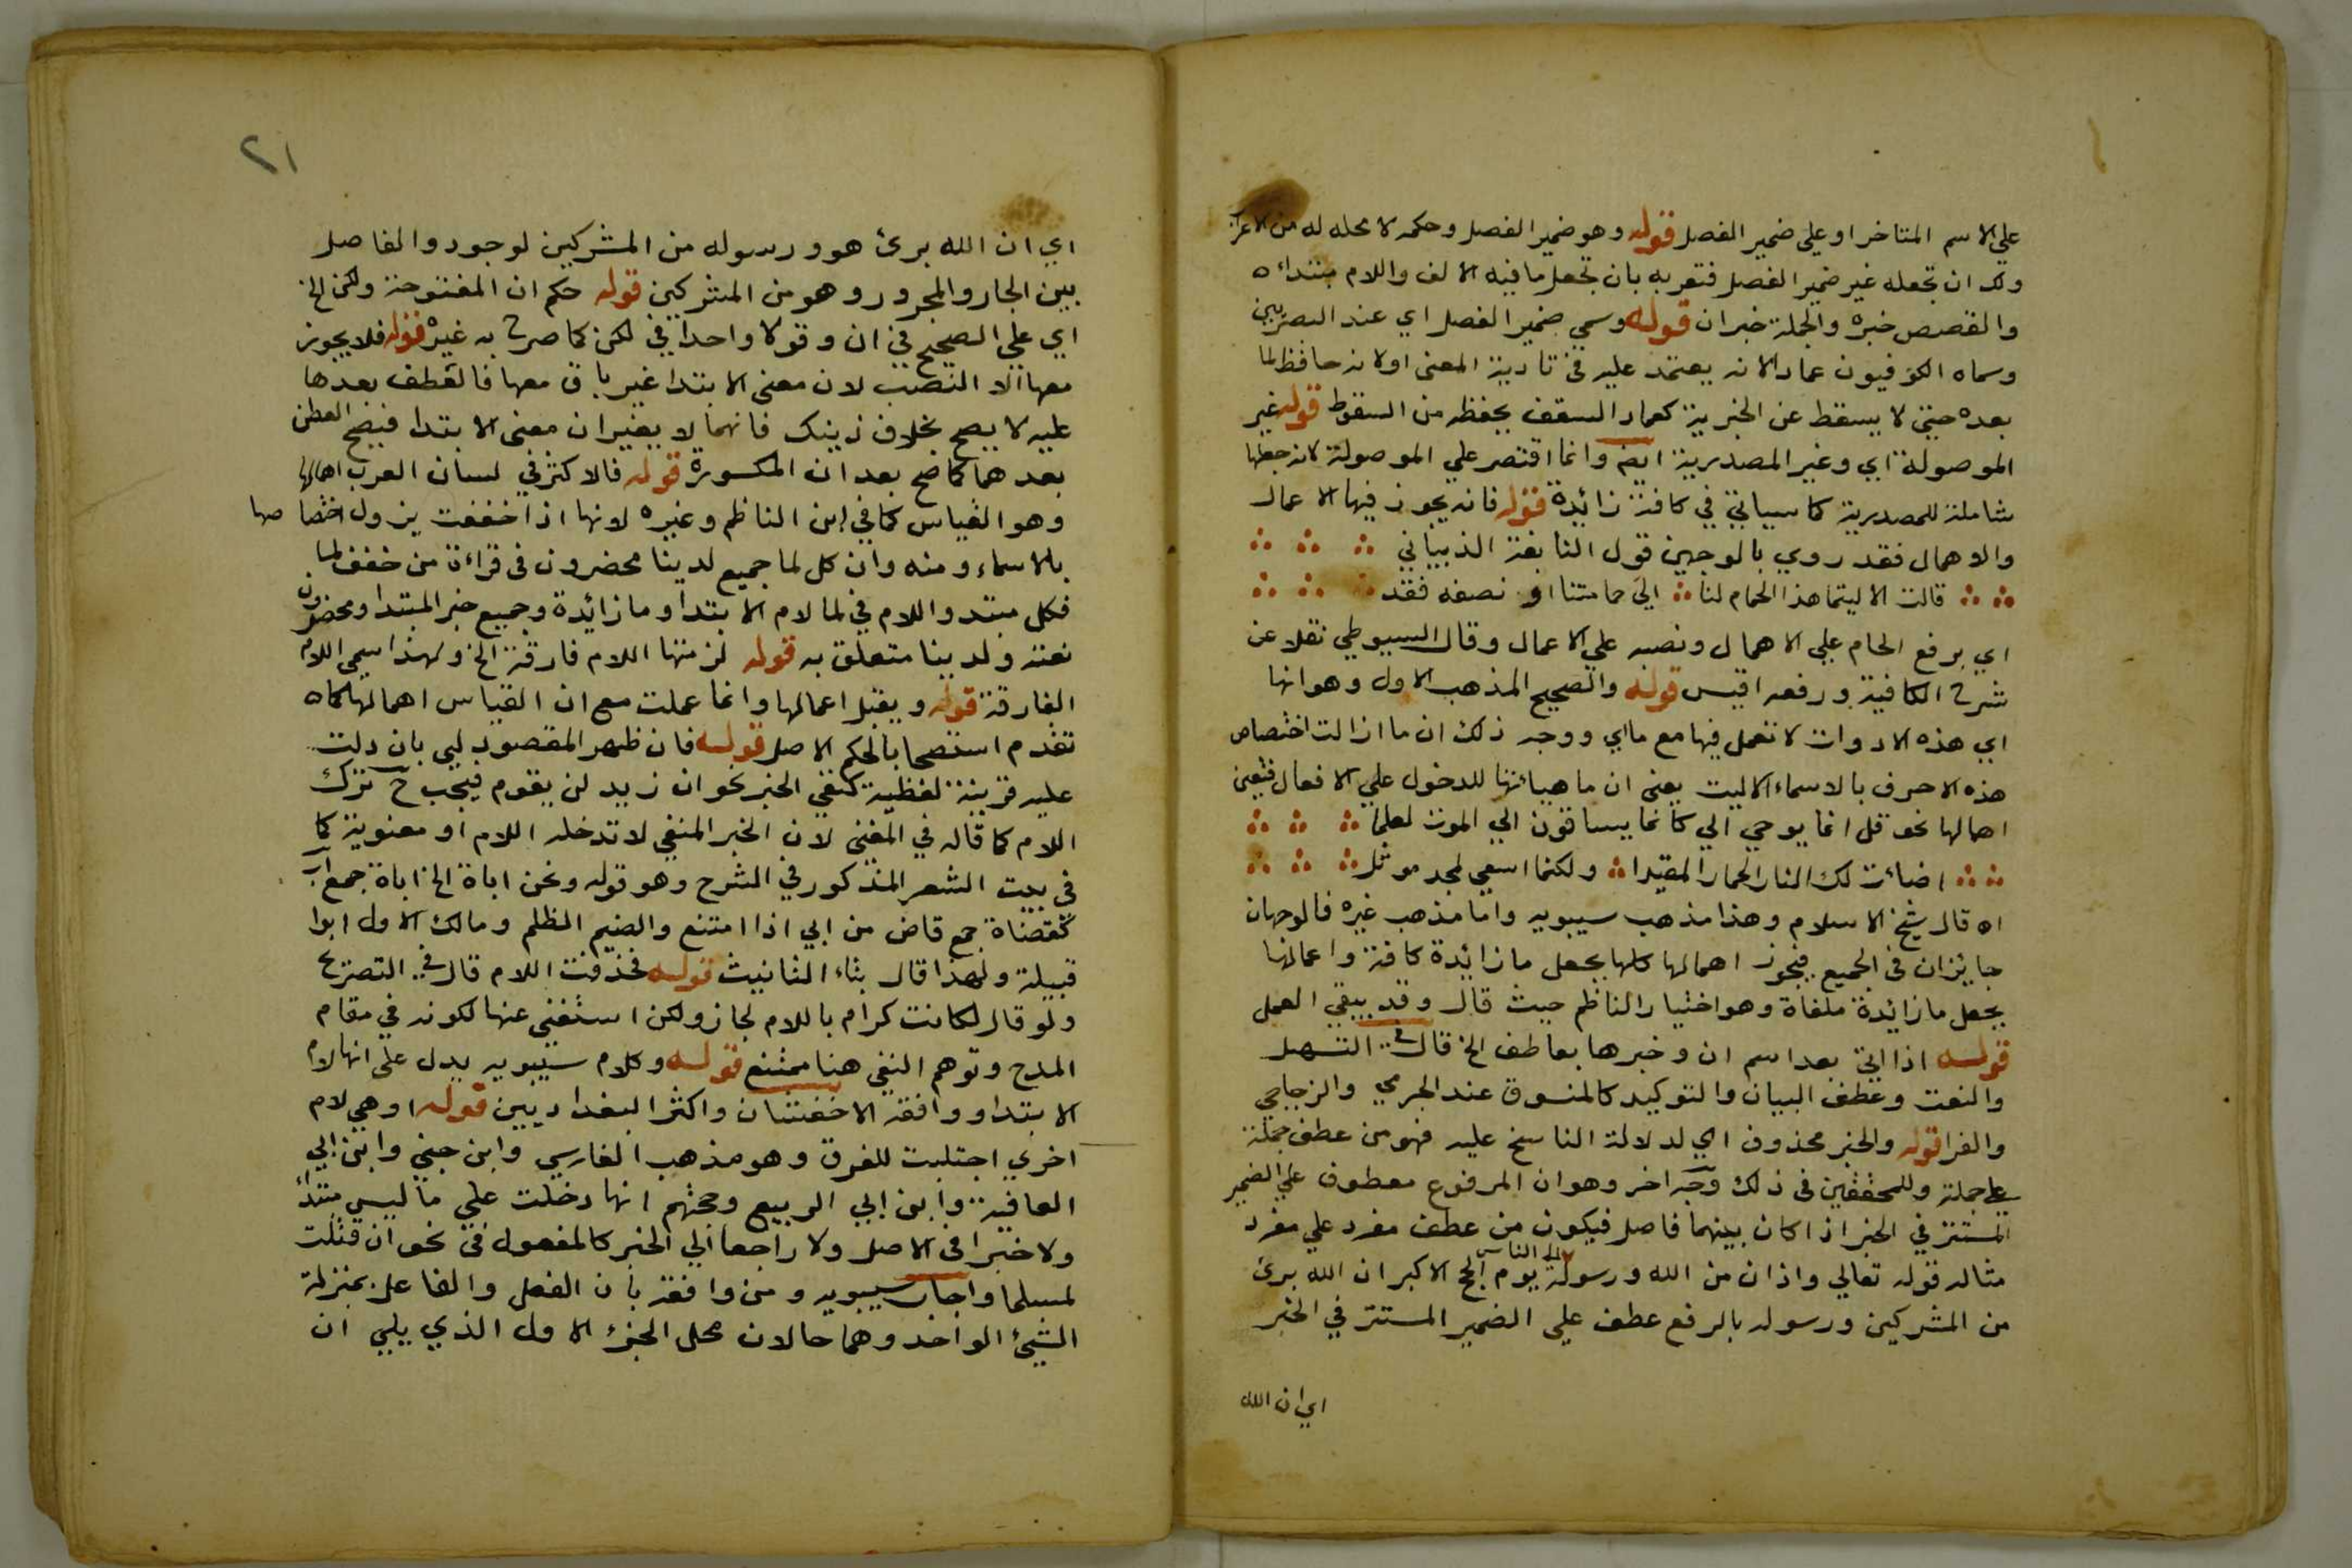 علي الاسم المتاخر او علي ضمير الفصل قوله وهو ضمير الفصل وحكمه لا محله له من الاعراب
ولك ان تجعله غير ضمير الفصل فتعربه بان تجعل ما فيه الالف واللام مبتداء ه
والقصص خبره والجملة خبران قوله وسمي ضمير الفصل اي عند البصريين
وسماه الكوفيون عمادا لانه يعتمد عليه في تادية المعني اولانه حافظ لما
بعده حتي لا يسقط عن الخبرية كعماد السقف يحفظه من السقوط قوله غير
الموصولة اي وغير المصدرية ايضا وانما اقتصر علي الموصولة لانه جعلها
شاملة للمصدرية كما سياتي في كافة زائدة قوله فانه يجوز فيها الاعمال
والاهمال فقد روي بالوجهين قول النابغة الذبياني
قالت الا ليتما هذا الحمام لنا الي حمامتنا او نصفه فقد
اي برفع الحمام علي الاهمال ونصبه علي الاعمال وقال السيوطي نقلا عن
شرح الكافية ورفعه اقيس قوله والصحيح المذهب الاول وهو انها
اي هذه الادوات لا تعمل فيها مع ما اي ووجه ذلك ان ما ازالت اختصاص
هذه الاحرف بالاسماء الا ليت يعني ان ما هيأتها للدخول علي الافعال فتعين
اهمالها نحو قل انما يوحي الي كانما يساقون الي الموت لعلما
اضائت لك النار الحمار المقيدا ولكنما اسعي لمجد موثل
اه قال شيخ الاسلام وهذا مذهب سيبويه واما مذهب غيره فالوجهان
جايزان في الجميع فيجوز اهمالها كلها بجعل ما زائدة كافة واعمالها
بجعل ما زائدة ملغاة وهو اختيار الناظم حيث قال وقد يبقي العمل
قوله اذا اتي بعد اسم ان وخبرها بعاطف الخ قال في التسهيل
والنعت وعطف البيان والتوكيد كالمنسوق عند الجرمي والزجاجي
والفرا قوله والخبر محذوف اي لدلالة الناسخ عليه فهو من عطف جملة
علي جملة وللمحققين في ذلك وجه اخر وهو ان المرفوع معطوف علي الضمير
المستتر في الخبر اذا كان بينهما فاصل فيكون من عطف مفرد علي مفرد
مثاله قوله تعالي واذان من الله ورسوله الي الناس يوم الحج الاكبر ان الله برئ
من المشركين ورسوله بالرفع عطف علي الضمير المستتر في الخبر
اي ان الله
٢١
اي ان الله برئ هو ورسوله من المشركين لوجود والفاصل
بين الجار والمجرور وهو من المشركين قوله حكم ان المفتوحة ولكن الخ
اي علي الصحيح في ان وقولا واحدا في لكن كما صرح به غيره قوله فلا يجوز
معها الا النصب لان معني الابتدا غير باق معها فالعطف بعدها
عليه لا يصح بخلاف ذينك فانهما لا يغيران معني الابتدا فيصح العطف
بعدهما كما صح بعد ان المكسورة قوله فالاكثر في لسان العرب اهمالها
وهو القياس كما في ابن الناظم وغيره لانها اذا خففت يزول اختصاصها
بالاسماء ومنه وان كل لما جميع لدينا محضرون في قراءة من خفف لما
فكل مبتد واللام في لما لام الابتدا وما زائدة وجميع خبر المبتدا ومحضرون
نعته ولدينا متعلق به قوله لزمتها اللام فارقة الخ ولهذا سمي اللام
الفارقة قوله ويقبل اعمالها وانما عملت مع ان القياس اهمالها كما ه
تقدم استصحابا لحكم الاصل قوله فان ظهر المقصود لي بان دلت
عليه قرينة لفظية كنفي الخبر نحو ان زيد لن يقوم فيجب ح ترك
اللام كما قاله في المغني لان الخبر المنفي لا تدخله اللام او معنوية كما
في بيت الشعر المذكور في الشرح وهو قوله ونحن اباة الخ اباة جمع اب
كقضاة جمع قاض من ابي اذا امتنع والضيم الظلم ومالك الاول ابوا
قبيلة ولهذا قال بتاء التانيث قوله فحذفت اللام قال في التصريح
ولو قال لكانت كرام باللام لجاز ولكن استغني عنها لكونه في مقام
المدح وتوهم النفي هنا ممتنع قوله وكلام سيبويه يدل علي انها لام
الابتدا ووافقه الاخفشان واكثر البغداديين قوله او هي لام
اخري اجتلبت للفرق وهو مذهب الفارسي وابن جني وابن ابي
العافية وابن ابي الربيع وحجتهم انها دخلت علي ما ليس مبتدأ
ولا خبرا في الاصل ولا راجعا الي الخبر كالمفعول في نحو ان قتلت
لمسلما واجاب سيبويه ومن وافقه بان الفعل والفاعل بمنزلة
الشيئ الواحد وهما حالان محل الجزء الاول الذي يلي ان